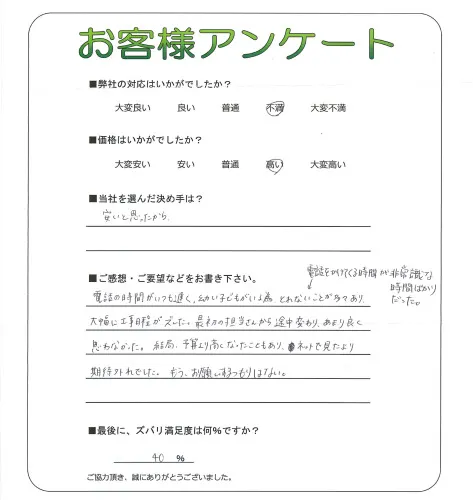 お客様アンケート
■弊社の対応はいかがでしたか？
大変良い 良い 普通 不満 大変不満
■価格はいかがでしたか？
大変安い 安い 普通 高い 大変高い
■当社を選んだ決め手は？
安いと思ったから.
■ご感想・ご要望などをお書き下さい。
電話をかけてくる時間が非常識な
時間ばかり
だった。
電話の時間がいつも遅く、幼い子どもがいる為、とれないことが多々あり
大幅に工事日程がズレた。最初の担当さんから途中変わり、あまり良く
思わなかった。結局、予算より高くなったこともあり、ネットで見たより
期待外れでした。もう、お願いするつもりはない。
■最後に、ズバリ満足度は何%ですか？
40 %
ご協力頂き、誠にありがとうございました。